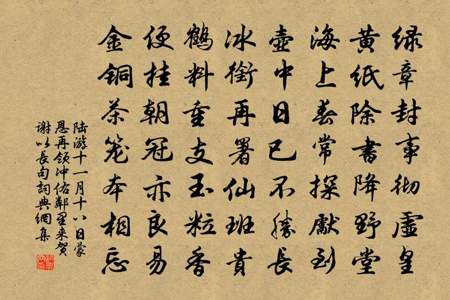 绿章封事彻虚皇
黄纸除书降野堂
海上春常探獻到
壺中日已不勝長
冰銜再署仙班貴
鶴料重支玉粒香
便挂朝冠亦良易
金铜茶笼本相忘
陆游十一月十八日蒙
恩再领冲佑鄰里来贺
谢以长句词典網集